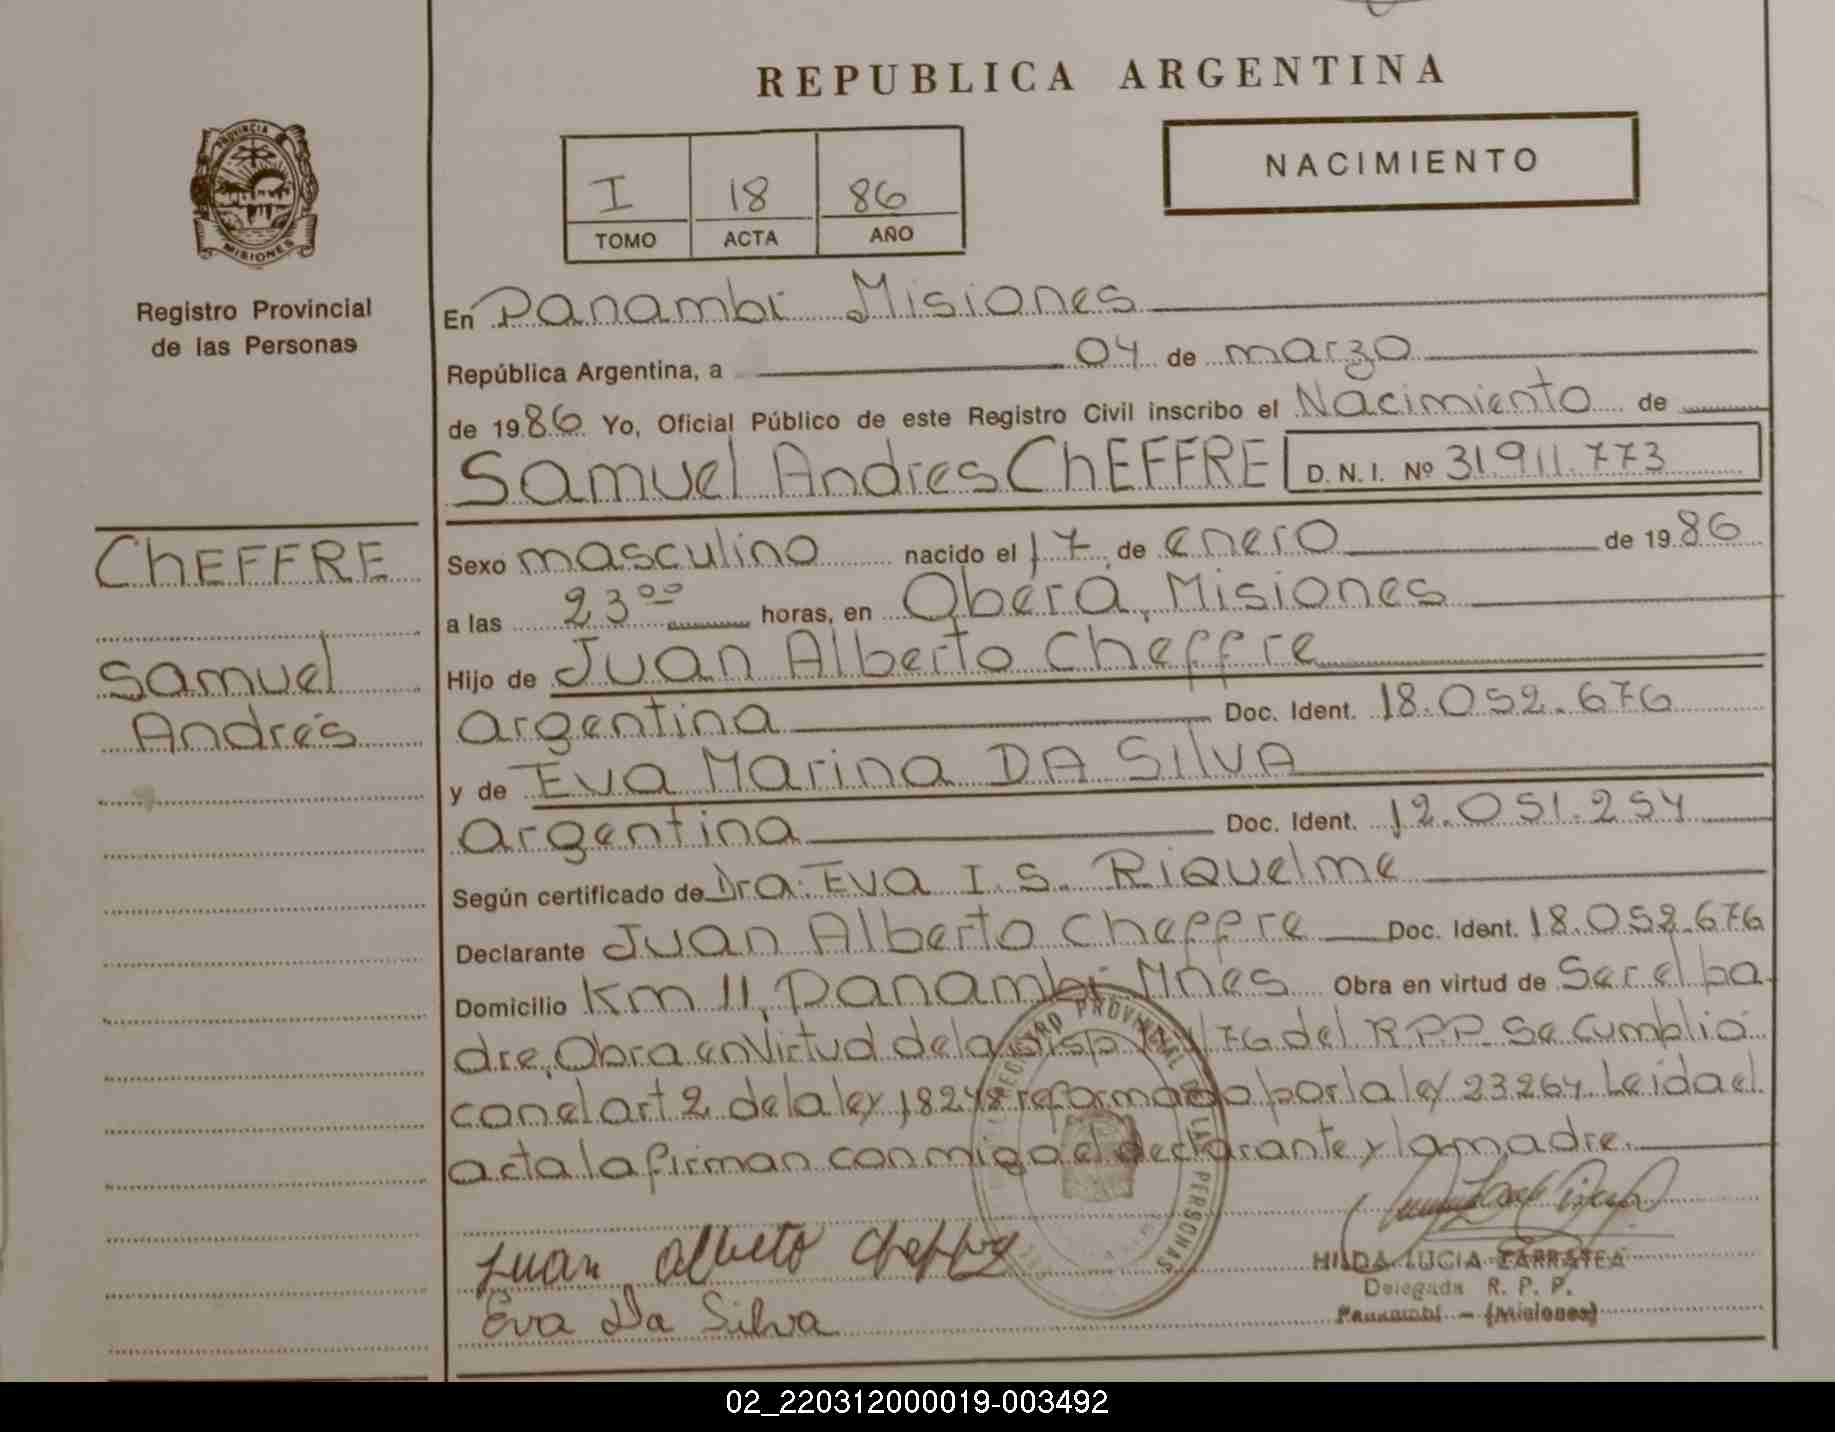 REPUBLICA ARGENTINA
NACIMIENTO
I 18 86
TOMO ACTA AÑO
PROVINCIA
MISIONES
Registro Provincial
de las Personas
CHEFFRE
Samuel
Andrés
En Panambi Misiones
República Argentina, a 04 de marzo
de 1986 Yo, Oficial Público de este Registro Civil inscribo el Nacimiento de
Samuel Andres ChEFFRE D. N. I. Nº 31.911.773
Sexo masculino nacido el 17 de enero de 1986
a las 23 00 horas, en Oberá, Misiones
Hijo de Juan Alberto Cheffre
argentina Doc. Ident. 18.052.676
y de Eva Marina DA SILVA
argentina Doc. Ident. 12.051.254
Según certificado de Dra. Eva I. S. Riquelme
Declarante Juan Alberto Cheffre Doc. Ident. 18.052.676
Domicilio Km 11, Panambi Mnes Obra en virtud de Ser el pa
dre, Obra en Virtud de la Disp /76 del R.P.P. Se Cumplió
con el art 2 de la ley 18248 reformado por la ley 23264. Leida el
acta la firman conmigo el declarante y la madre.
REGISTRO PROVINCIAL DE LAS PERSONAS
Juan Alberto Cheffre
Eva Da Silva
HILDA LUCIA ZARRATEA
Delegada R. P. P.
Panambi - (Misiones)
02_220312000019-003492